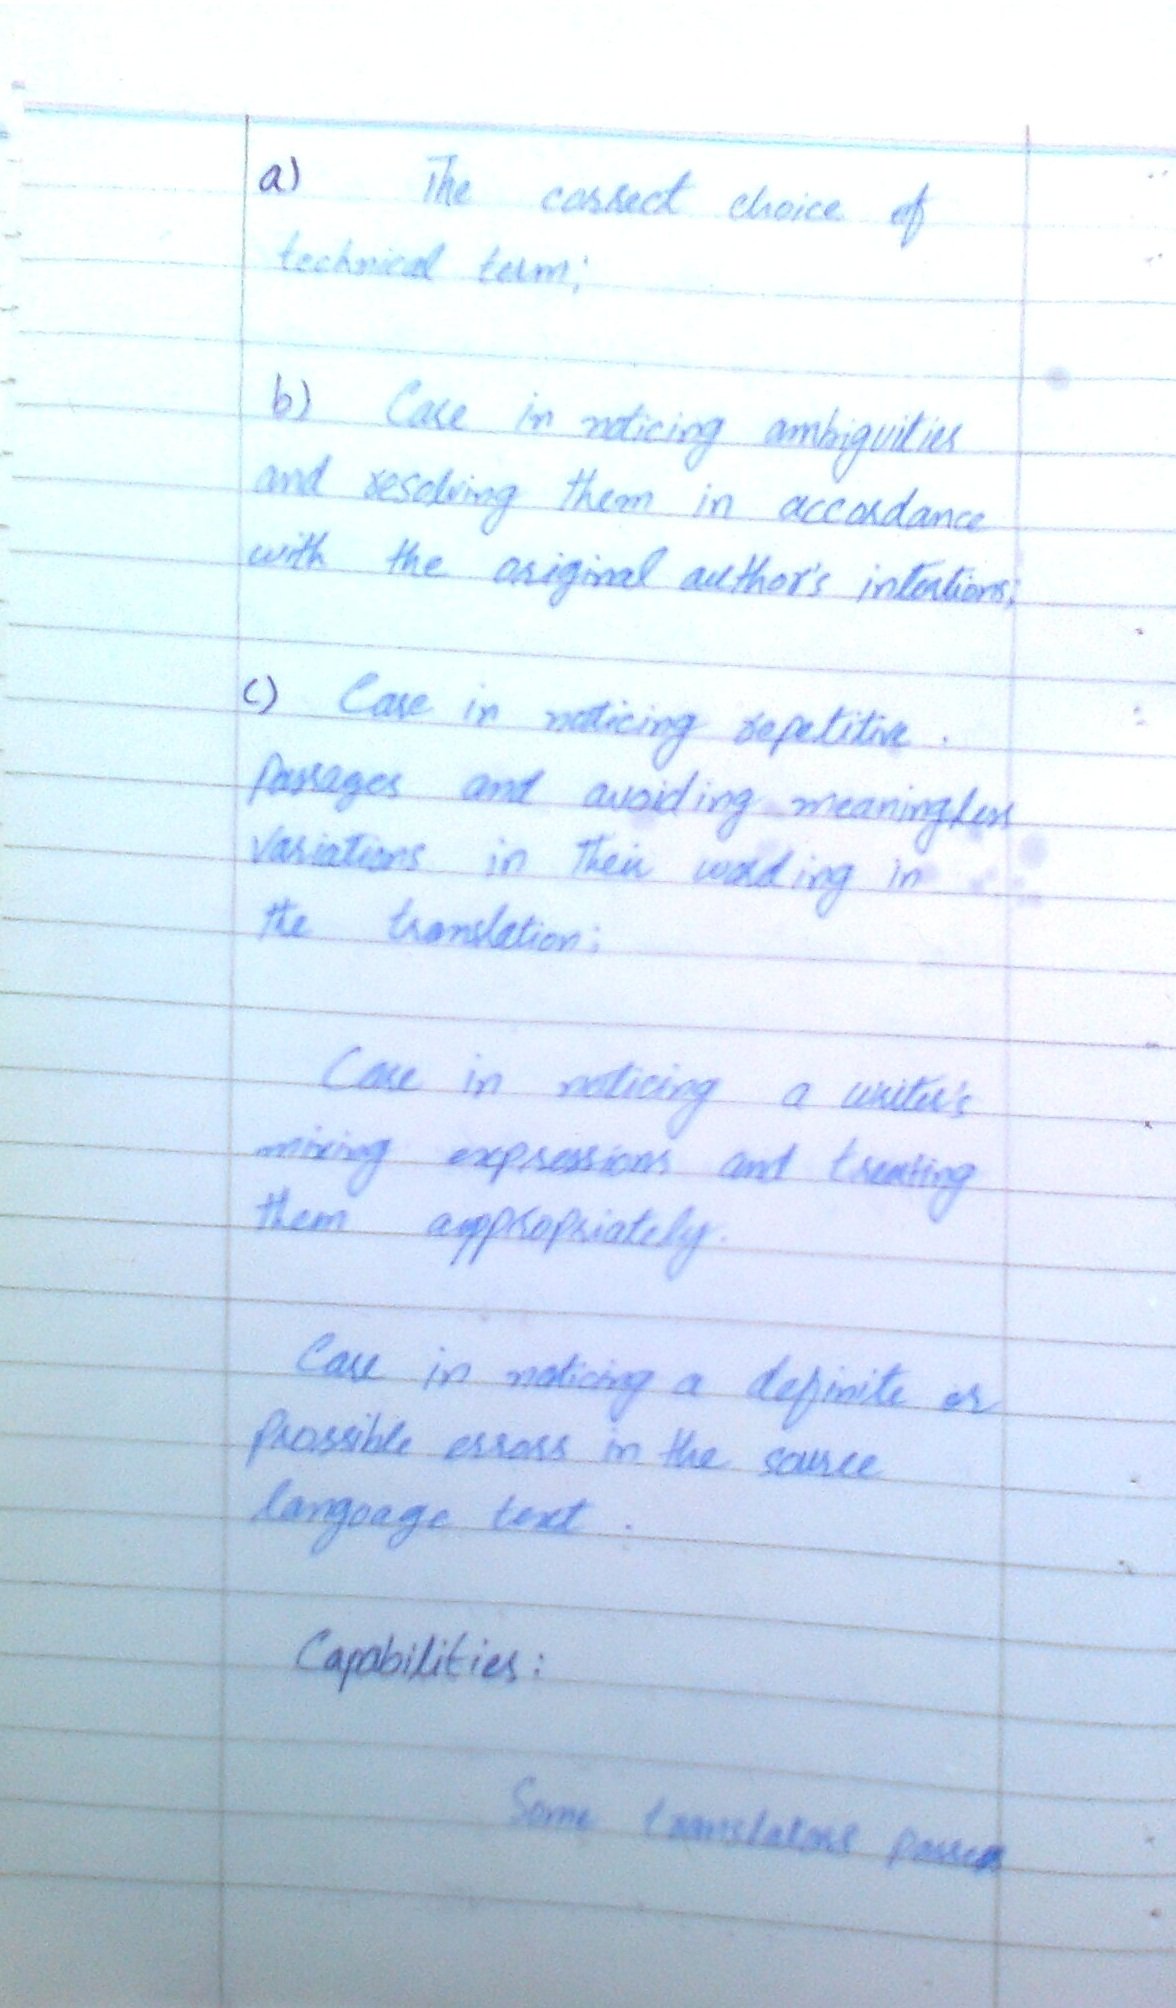 a) The correct choice of
technical term;
b) Care in noticing ambiguities
and resolving them in accordance
with the original author's intentions;
c) Care in noticing repetitive.
passages and avoiding meaningless
variations in their wording in
the translation;
Care in noticing a writer's
mixing expressions and treating
them appropriately.
Care in noticing a definite or
possible errors in the source
language text.
Capabilities:
Some translators